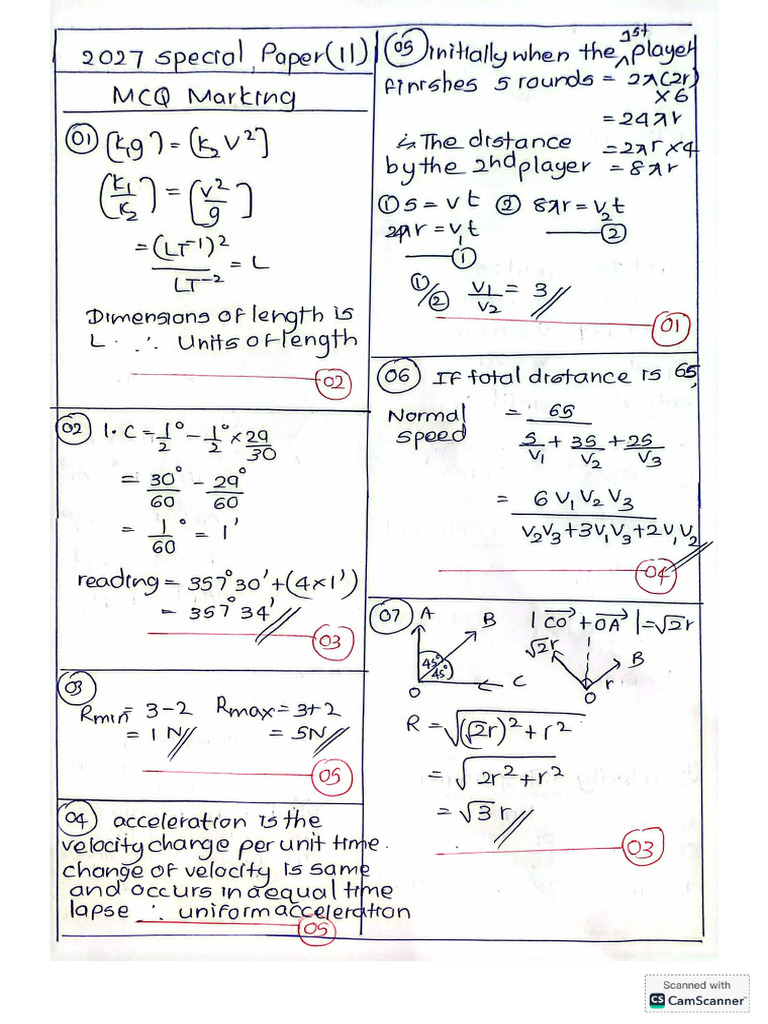 2027 special Paper(11)
MCQ Marking
01 [k₁g] = [k₂ V²]
[k₁/k₂] = [v²/g]
= (LT⁻¹)²/LT⁻² = L
Dimensions of length is
L. ∴ Units of length
02
02 l.C = 1°/2 - 1°/2 × 29/30
= 30°/60 - 29°/60
= 1°/60 = 1'
reading = 357°30' + (4×1')
= 357°34'
03
03
Rmin = 3-2 Rmax = 3+2
= 1N = 5N
05
04 acceleration is the
velocity change per unit time.
change of velocity is same
and occurs in a equal time
lapse ∴ uniform acceleration
05
05 initially when the 1st player
finishes 5 rounds = 2π(2r)
×6
= 24πr
∴ The distance = 2πr×4
by the 2nd player = 8πr
① s = vt ② 8πr = v₂t
= v₁t ②
①
①/② v₁/v₂ = 3
01
06 If total distance is 6s,
Normal speed = 6s / (s/v₁ + 3s/v₂ + 2s/v₃)
= 6v₁v₂v₃ / (v₂v₃+3v₁v₃+2v₁v₂)
04
07 A B |CO→ + OA→| = √2r
√2r B
45°
45° C r
O O
R = √((√2r)² + r²)
= √(2r² + r²)
= √3 r
03
Scanned with
CS CamScanner